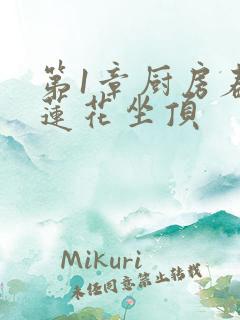 第1章厨房春
蓮花坐頂
Mikuri
未经同意禁止转载